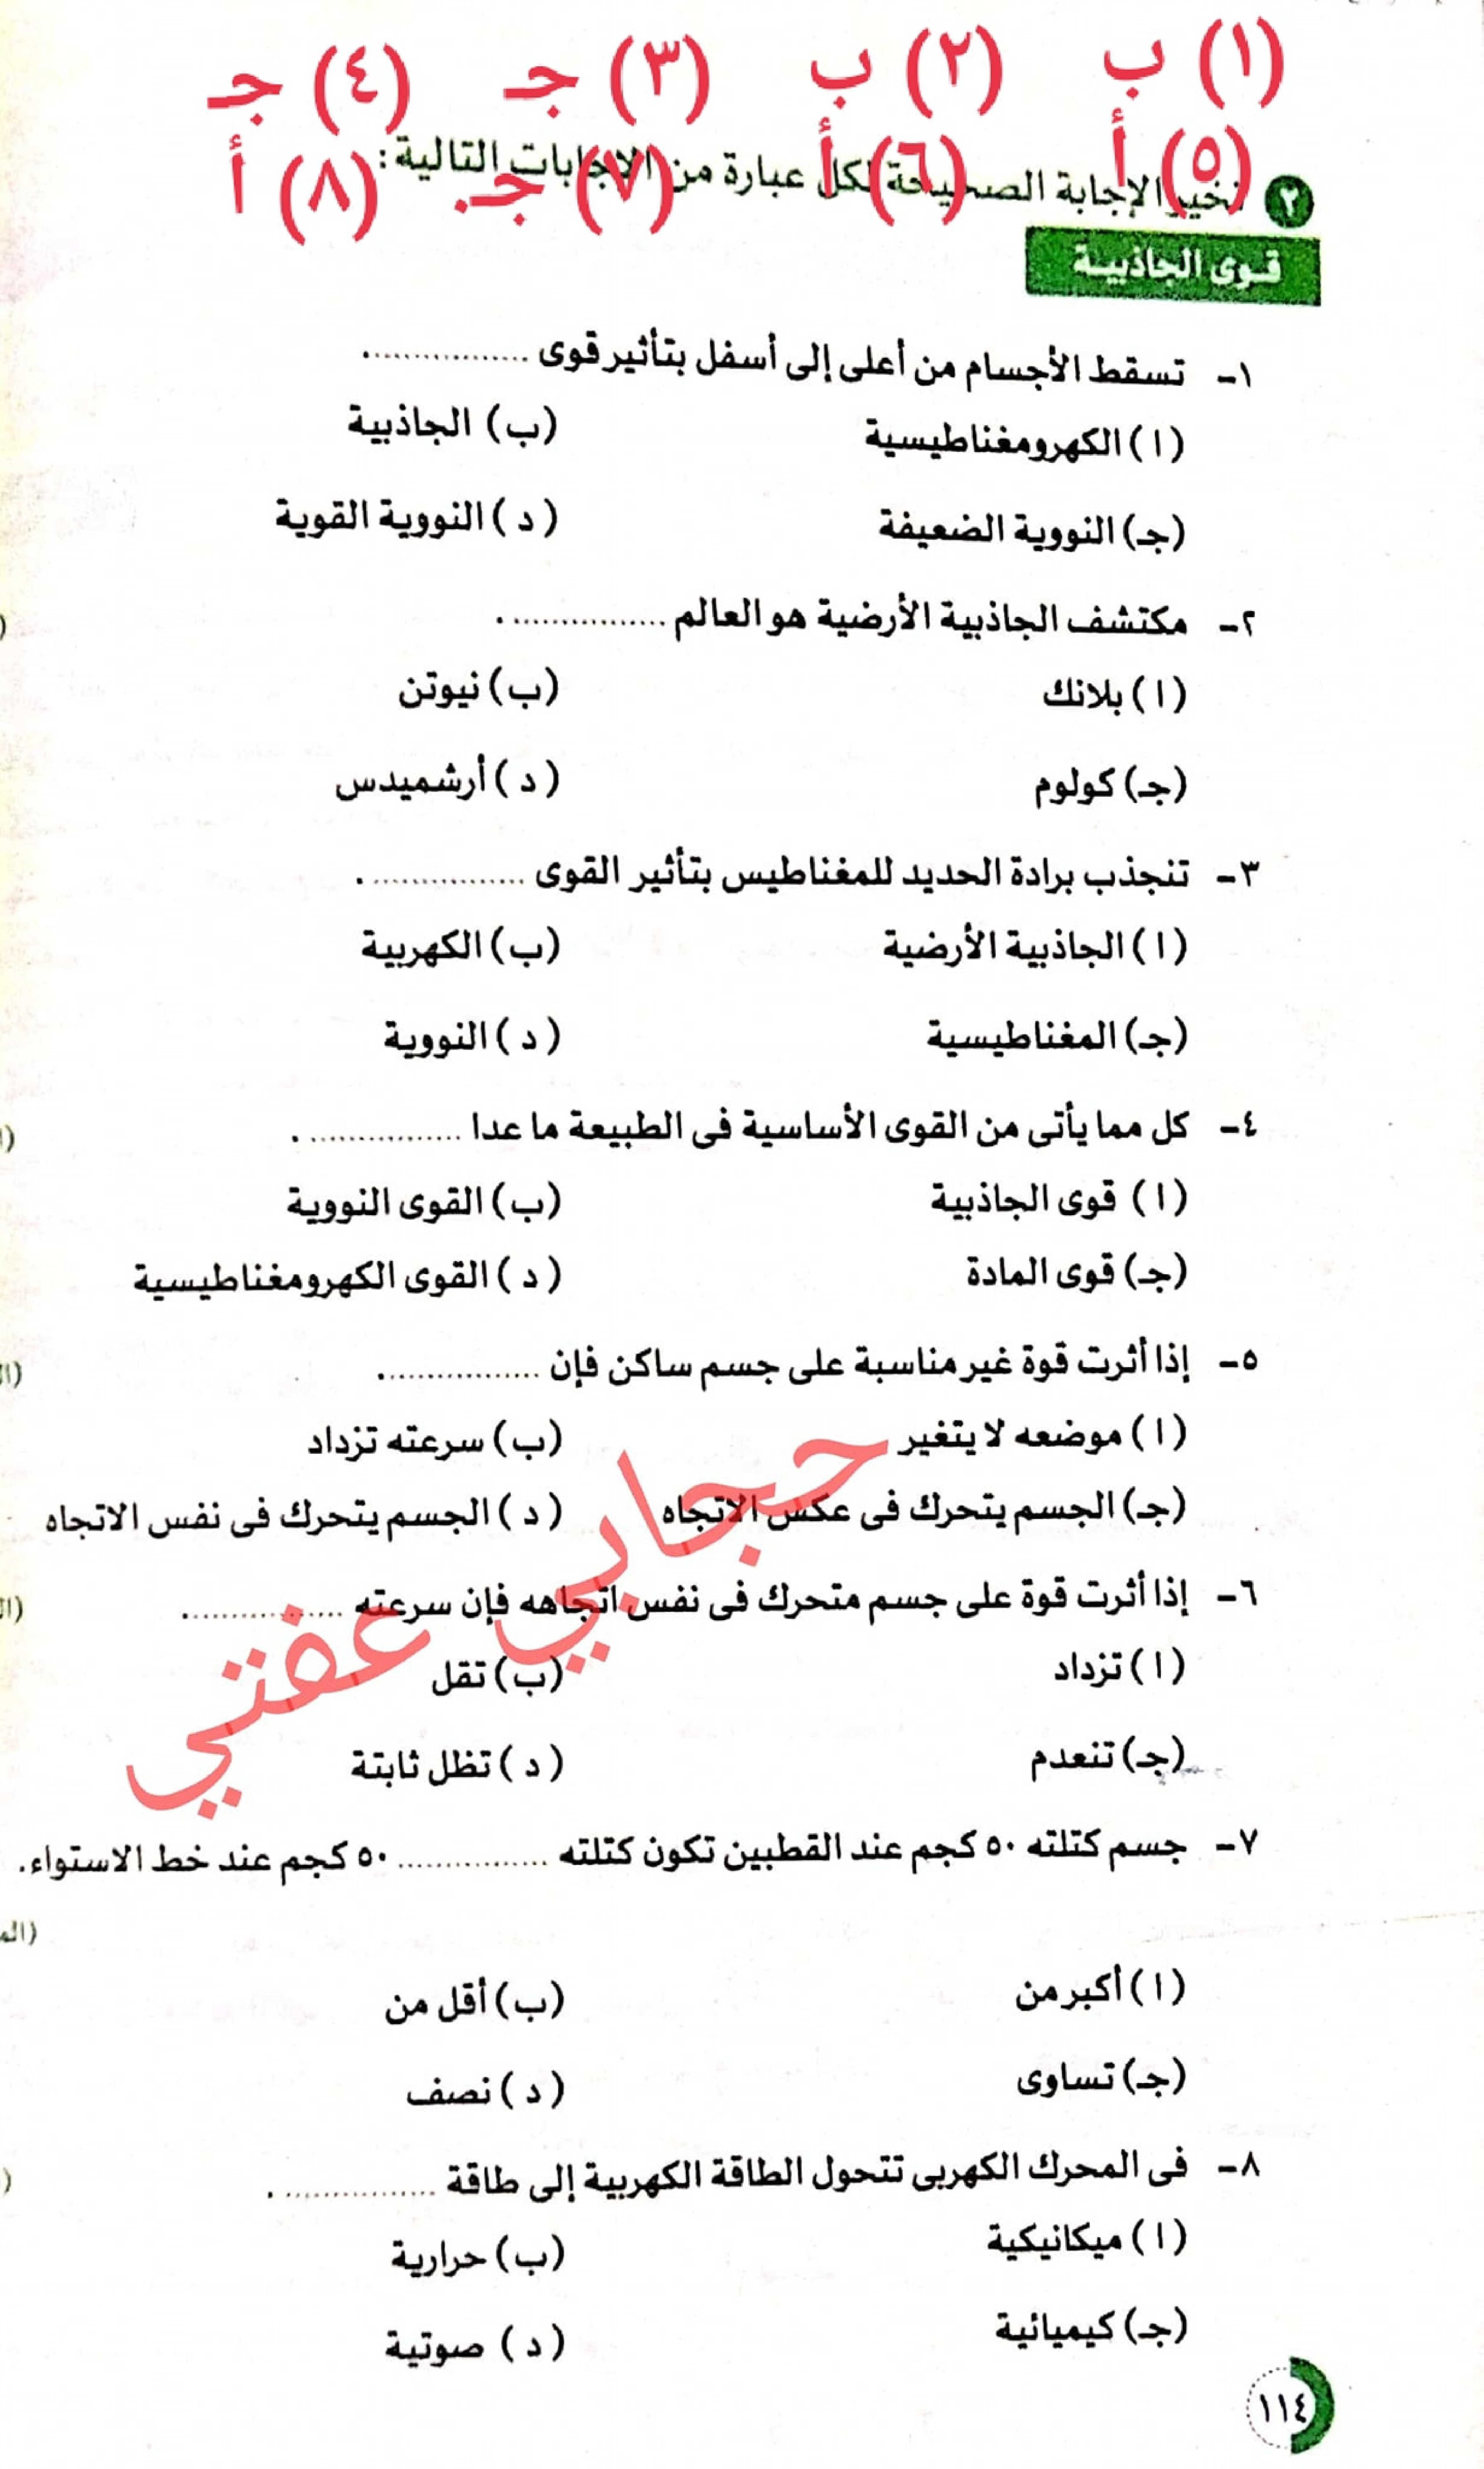 (١) ب (٢) ب (٣) جـ (٤) جـ
(٥) أ (٦) أ (٧) جـ (٨) أ
٢ تخير الإجابة الصحيحة لكل عبارة من الإجابات التالية:
قوى الجاذبية
١- تسقط الأجسام من أعلى إلى أسفل بتأثير قوى ................
(ا) الكهرومغناطيسية (ب) الجاذبية
(جـ) النووية الضعيفة (د) النووية القوية
٢- مكتشف الجاذبية الأرضية هو العالم ................ .
(ا) بلانك (ب) نيوتن
(جـ) كولوم (د) أرشميدس
٣- تنجذب برادة الحديد للمغناطيس بتأثير القوى ................ .
(ا) الجاذبية الأرضية (ب) الكهربية
(جـ) المغناطيسية (د) النووية
٤- كل مما يأتى من القوى الأساسية فى الطبيعة ما عدا ................ .
(ا) قوى الجاذبية (ب) القوى النووية
(جـ) قوى المادة (د) القوى الكهرومغناطيسية
٥- إذا أثرت قوة غير مناسبة على جسم ساكن فإن ................
(ا) موضعه لا يتغير (ب) سرعته تزداد
(جـ) الجسم يتحرك فى عكس الاتجاه (د) الجسم يتحرك فى نفس الاتجاه
٦- إذا أثرت قوة على جسم متحرك فى نفس اتجاهه فإن سرعته ................
(ا) تزداد (ب) تقل
(جـ) تنعدم (د) تظل ثابتة
حجابي عفتي
٧- جسم كتلته ٥٠ كجم عند القطبين تكون كتلته ................ ٥٠ كجم عند خط الاستواء.
(ا) أكبر من (ب) أقل من
(جـ) تساوى (د) نصف
٨- فى المحرك الكهربى تتحول الطاقة الكهربية إلى طاقة ................ .
(ا) ميكانيكية (ب) حرارية
(جـ) كيميائية (د) صوتية
١١٤